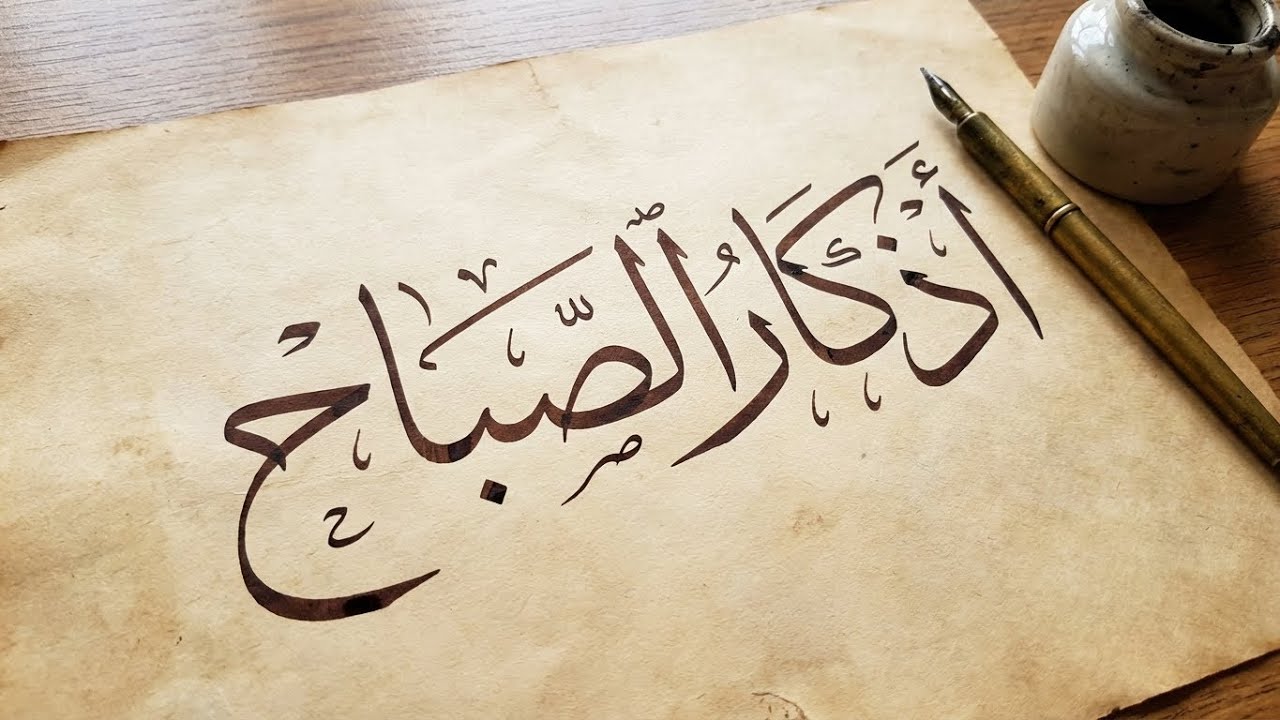 أَذْكَارُ ٱلصَّبَاحْ